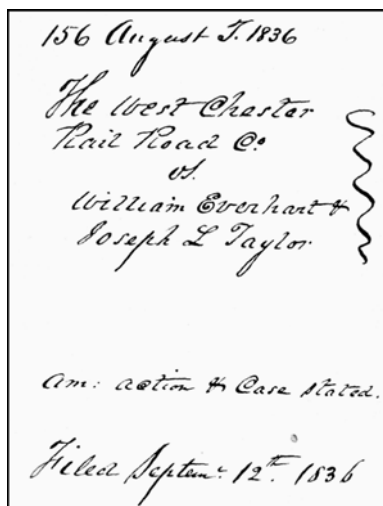 156 August T. 1836
The West Chester
Rail Road Co.
vs.
William Everhart &
Joseph L Taylor
Am: action & Case stated.
Filed Septemr. 12th. 1836